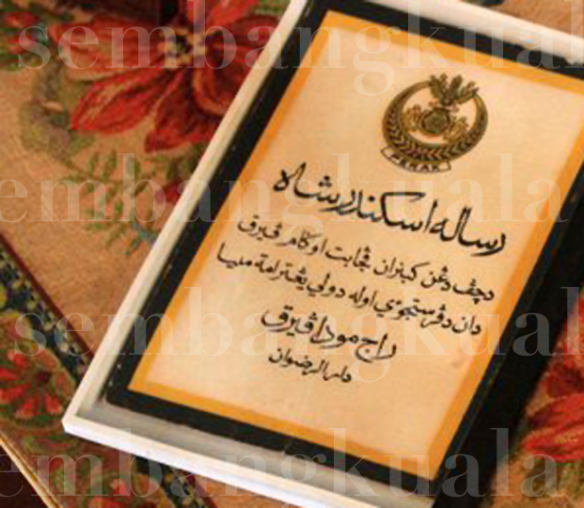 PERAK
رساله اسكندر شاه
دچڤ دڠن كبنران ڤجابت اوݢام ڤيرق
دان دڤرستجوءي اوله دولي يڠ ترامة مليا
راج مودا ڤيرق
دار الرضوان
sembangkuala
sembangkuala
sembangkuala
sembangkuala